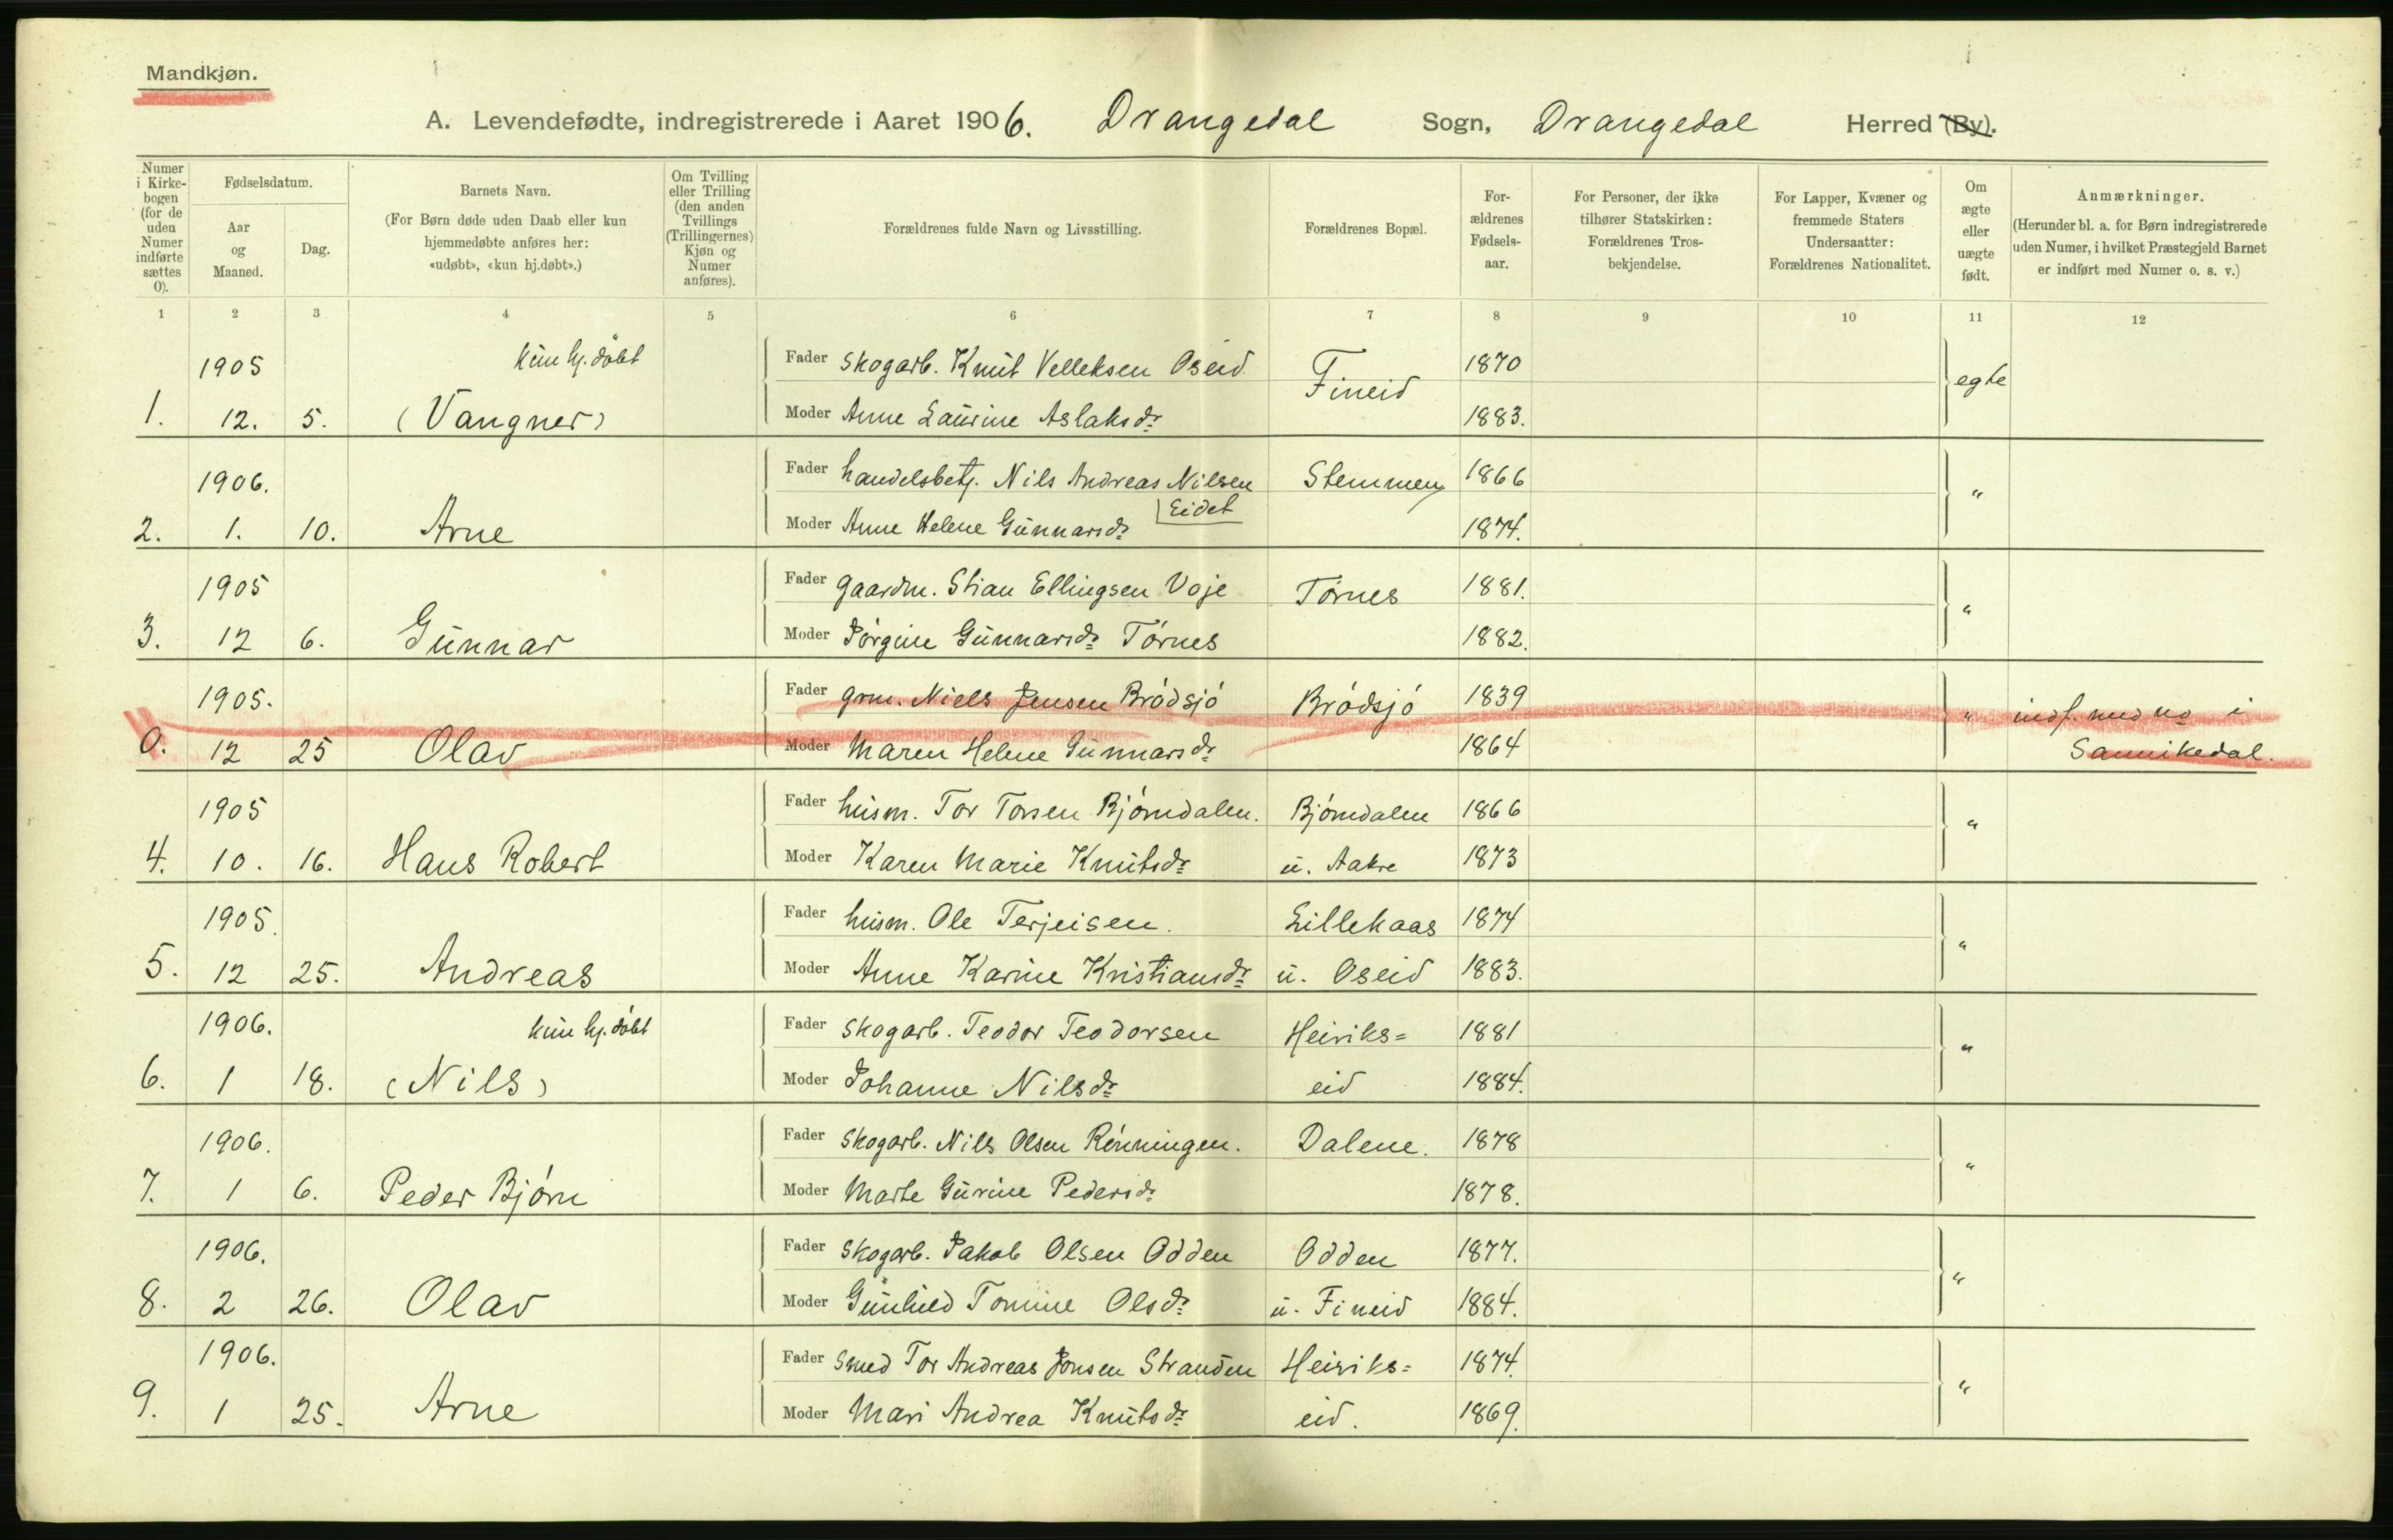 Mandkjøn.
A. Levendefødte, indregistrerede i Aaret 1906. Drangedal Sogn, Drangedal Herred (By).
Numer i Kirkebogen (for de uden Numer indførte sættes 0).
Fødselsdatum.
Aar og Maaned.
Dag.
Barnets Navn.
(For Børn døde uden Daab eller kun hjemmedøbte anføres her: «udøbt», «kun hj.døbt».)
Om Tvilling eller Trilling (den anden Tvillings (Trillingernes) Kjøn og Numer anføres).
Forældrenes fulde Navn og Livsstilling.
Forældrenes Bopæl.
Forældrenes Fødselsaar.
For Personer, der ikke tilhører Statskirken: Forældrenes Trosbekjendelse.
For Lapper, Kvæner og fremmede Staters Undersaatter: Forældrenes Nationalitet.
Om ægte eller uægte født.
Anmærkninger.
(Herunder bl. a. for Børn indregistrerede uden Numer, i hvilket Præstegjeld Barnet er indført med Numer o. s. v.)
1 2 3 4 5 6 7 8 9 10 11 12
1905 kun hj. døbt Fader Skogarb. Knut Velleksen Oseid Fineid 1870 egte
1. 12. 5. (Vangner) Moder Anne Laurine Aslaksdr 1883.
1906. Fader handelsbetj. Nils Andreas Nilsen Eidet Stemmen 1866 "
2. 1. 10. Arne Moder Anne Helene Gunnarsdr 1874.
1905 Fader gaardm. Stian Ellingsen Voje Tørnes 1881. "
3. 12 6. Gunnar Moder Jørgine Gunnarsdr Tørnes 1882.
1905. Fader grm. Niels Jensen Brødsjø Brødsjø 1839 " indf. med no i
0. 12 25 Olav Moder Maren Helene Gunnarsdr 1864 Sannikedal.
1905 Fader husm. Tor Torsen Bjørndalen. Bjørndalen 1866 "
4. 10. 16. Hans Robert Moder Karen Marie Knutsdr u. Aakre 1873
1905. Fader husm. Ole Terjeisen. Lillekaas 1874 "
5. 12 25. Andreas Moder Anne Karine Kristiansdr u. Oseid 1883.
1906. kun hj. døbt Fader Skogarb. Teodor Teodorsen Heiriks= 1881 "
6. 1 18. (Nils) Moder Johanne Nilsdr eid 1884.
1906. Fader Skogarb. Nils Olsen Rønningen. Dalene. 1878 "
7. 1 6. Peder Bjørn Moder Marte Gurine Pedersdr 1878.
1906. Fader Skogarb. Jakob Olsen Odden Odden 1877. "
8. 2 26. Olav Moder Gunhild Tomine Olsdr u. Fineid 1884.
1906. Fader Smed Tor Andreas Jonsen Stranden Heiriks= 1874. "
9. 1 25. Arne Moder Mari Andrea Knutsdr eid. 1869.